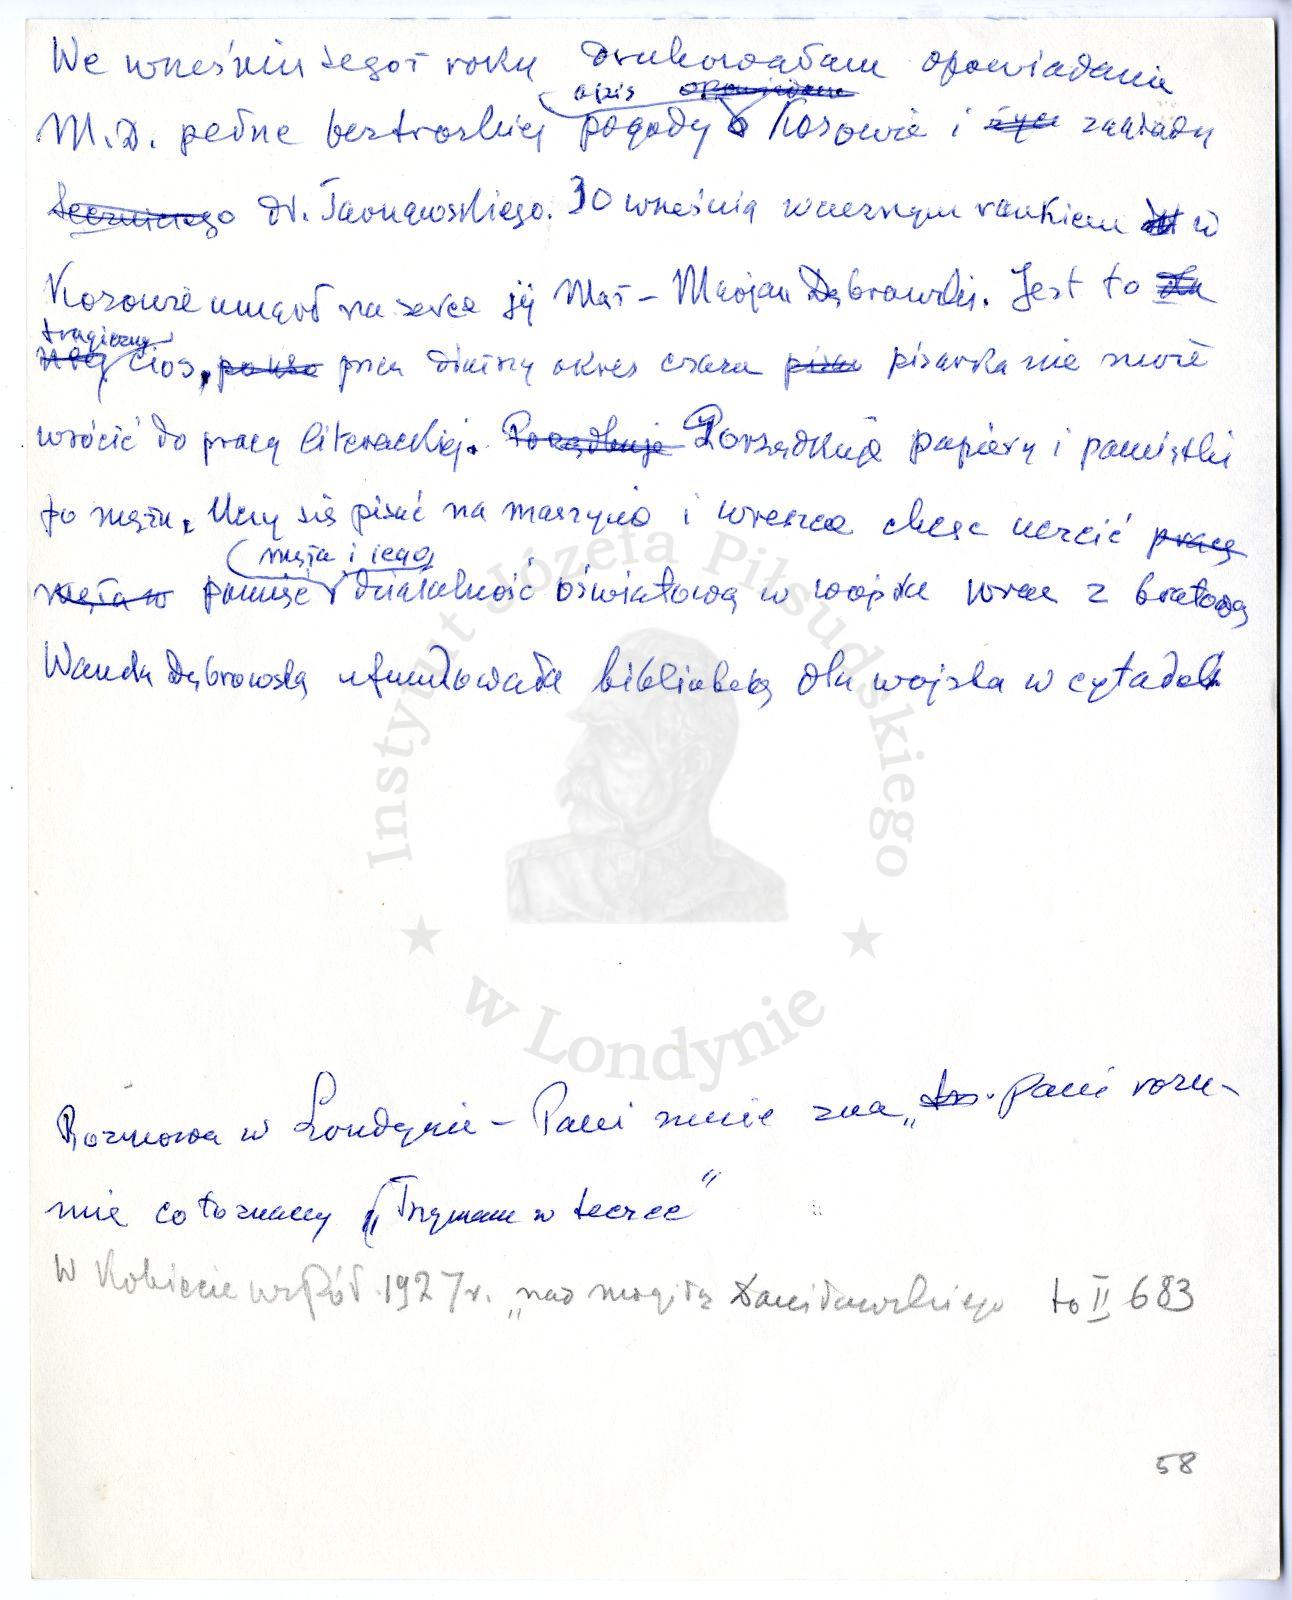 We wrześniu tegoż roku drukowałam opowiadanie
opis opowiadanie
M.D. pełne beztroskiej pogody o Kosowie i życie zakładu
leczniczego dr. Tarnawskiego. 30 września wczesnym rankiem w
Kosowie umarł na serce jej Mąż – Marjan Dąbrowski. Jest to dla
tragiczny
niej cios, przez dłuższy okres czasu pisar pisarka nie może
wrócić do pracy literackiej. Porządkuje Porządkuje papiery i pamiątki
po mężu. Uczy się pisać na maszynie i wreszcie chcąc uczcić pracę
męża i jego
męża w pamięć działalność oświatową w wojsku wraz z bratową
Wandą Dąbrowską ufundowała bibliotekę dla wojska w cytadeli
Instytut Józefa Piłsudskiego
w Londynie
Rozmowa w Londynie – Pani mnie zna „ Pani rozu-
mie co to znaczy („Trzymam w teczce”
W Kobiecie współ. 1927 r. „nad mogiłą Daniłowskiego to II 683
58